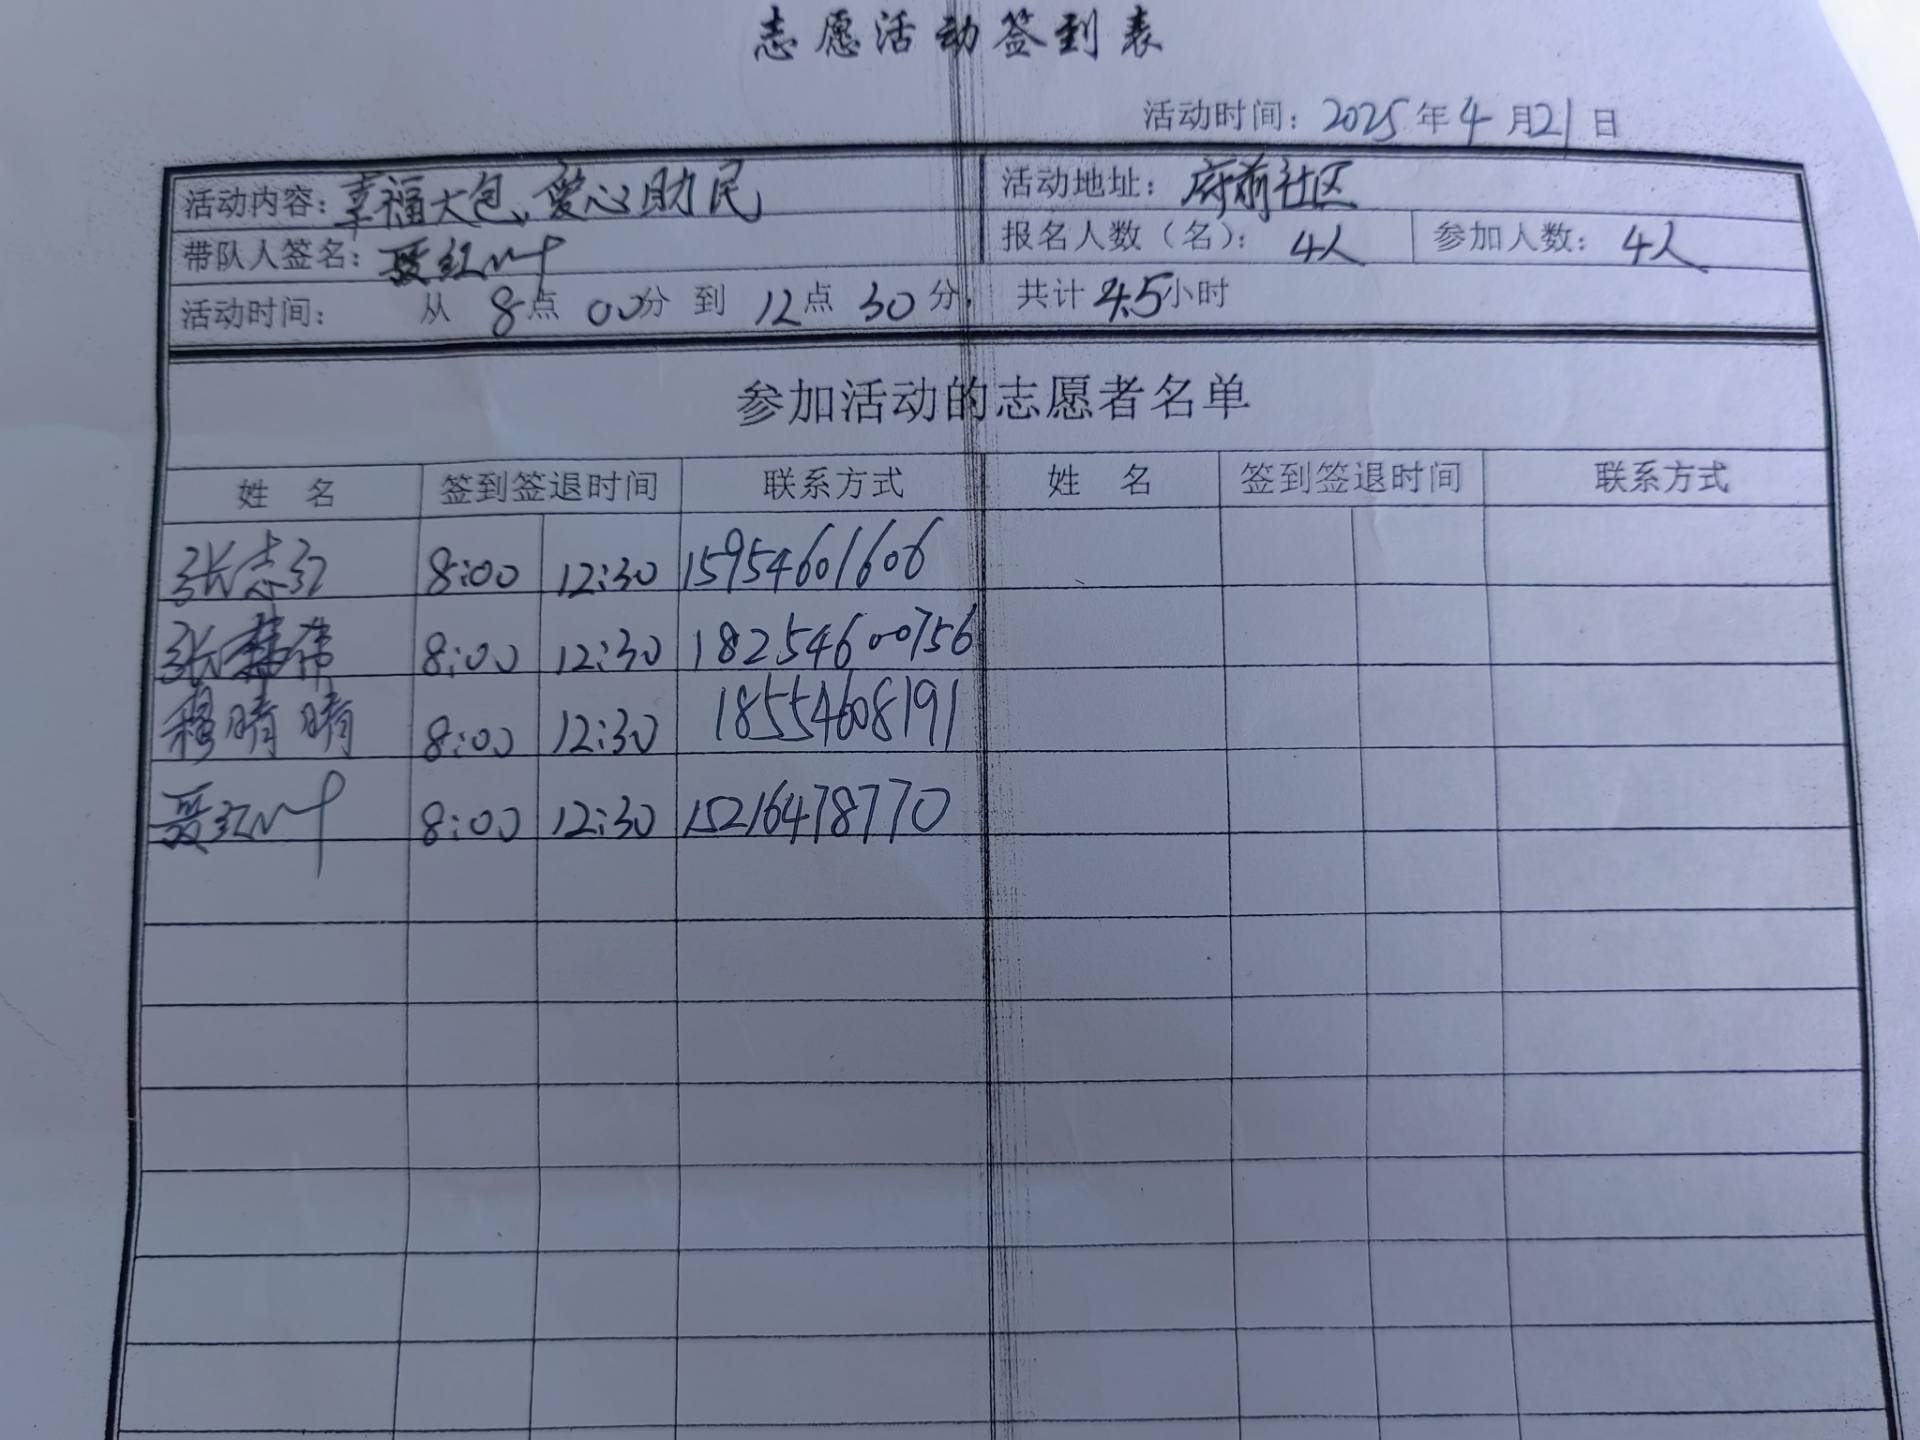 志愿活动签到表
活动时间：2025年4月21日
活动内容：幸福大包、爱心助民 活动地址：府前社区
带队人签名：聂红叶 报名人数（名）：4人 参加人数：4人
活动时间： 从 8点 00分 到 12点 30分， 共计 4.5小时
参加活动的志愿者名单
姓 名 签到签退时间 联系方式 姓 名 签到签退时间 联系方式
张志红 8:00 12:30 15954601606
张 伟 8:00 12:30 18254600756
穆晴晴 8:00 12:30 18554608191
聂红叶 8:00 12:30 15216478770